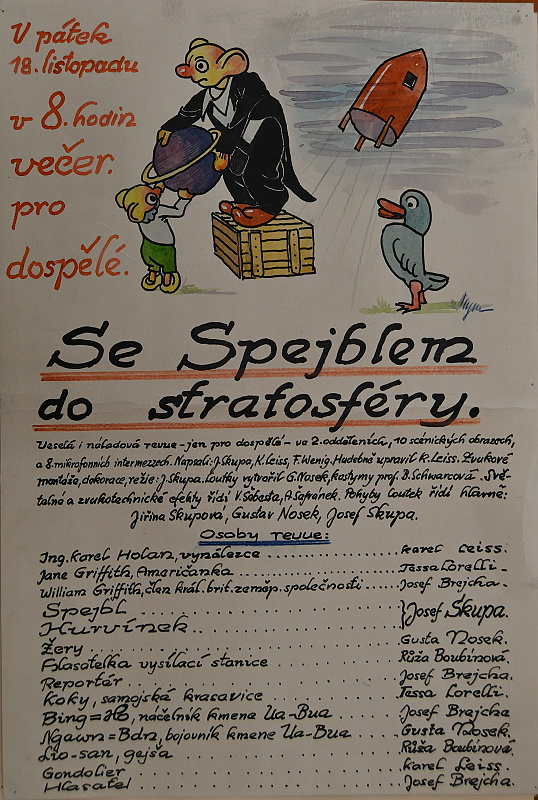 V pátek
18. listopadu
v 8. hodin
večer.
pro
dospělé.
Se Spejblem
do stratosféry.
Veselá i náladová revue - jen pro dospělé - ve 2. odděleních, 10 scénických obrazech,
a 8. mikrofonních intermezzech. Napsali: J. Skupa, K. Leiss, F. Wenig. Hudebně upravil K. Leiss. Zvukové
montáže, dekorace, režie: J. Skupa. Loutky vytvořil G. Nosek, kostymy prof. B. Schwarcová. Svě-
telné a zvukotechnické efekty řídí V. Šebesta, A. Šafránek. Pohyby loutek řídí hlavně:
Jiřina Skupová, Gustav Nosek, Josef Skupa.
Osoby revue:
Ing. Karel Holan, vynálezce . . . . . . . . . . Karel Leiss.
Jane Griffith, Američanka . . . . . . . . . . Tessa Lorelli -
William Griffith, člen král. brit. zeměp. společnosti . . . . Josef Brejcha.
Spejbl . . . . . . . . . . } Josef Skupa.
Hurvínek . . . . . . . . . .
Žery . . . . . . . . . . Gusta Nosek.
Hlasatelka vysílací stanice . . . . . . . . . . Růža Boubínová.
Reportár . . . . . . . . . . Josef Brejcha.
Koky, samojská krasavice . . . . . . . . . . Tessa Lorelli.
Bing = Hő, náčelník kmene Ua-Bua . . . . . . Josef Brejcha
Ngawn = Bdn, bojovník kmene Ua-Bua . . . . . . Gusta Nosek.
Lio-san, gejša . . . . . . . . . . Růža Boubínová.
Gondolier . . . . . . . . . . Karel Leiss.
Hlasatel . . . . . . . . . . Josef Brejcha.